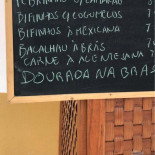 BIFINHOS C/ COGUMELOS
BIFINHOS À MEXICANA 7
BACALHAU A BRÁS 7
CARNE À ALENTEJANA
DOURADA NA BRAS